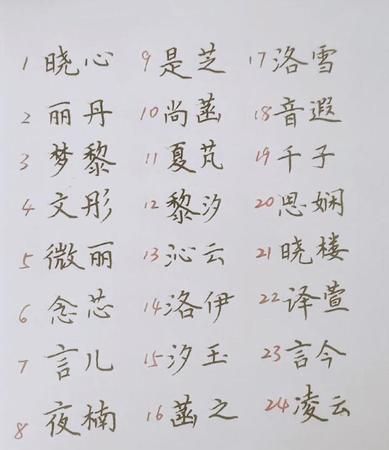 1 晓心 9 是芝 17 洛雪
2 丽丹 10 尚菡 18 音遐
3 梦黎 11 夏芃 19 千子
4 文彤 12 黎汐 20 思娴
5 微丽 13 沁云 21 晓楼
6 念芯 14 洛伊 22 译萱
7 言儿 15 汐玉 23 言今
8 夜楠 16 菡之 24 凌云